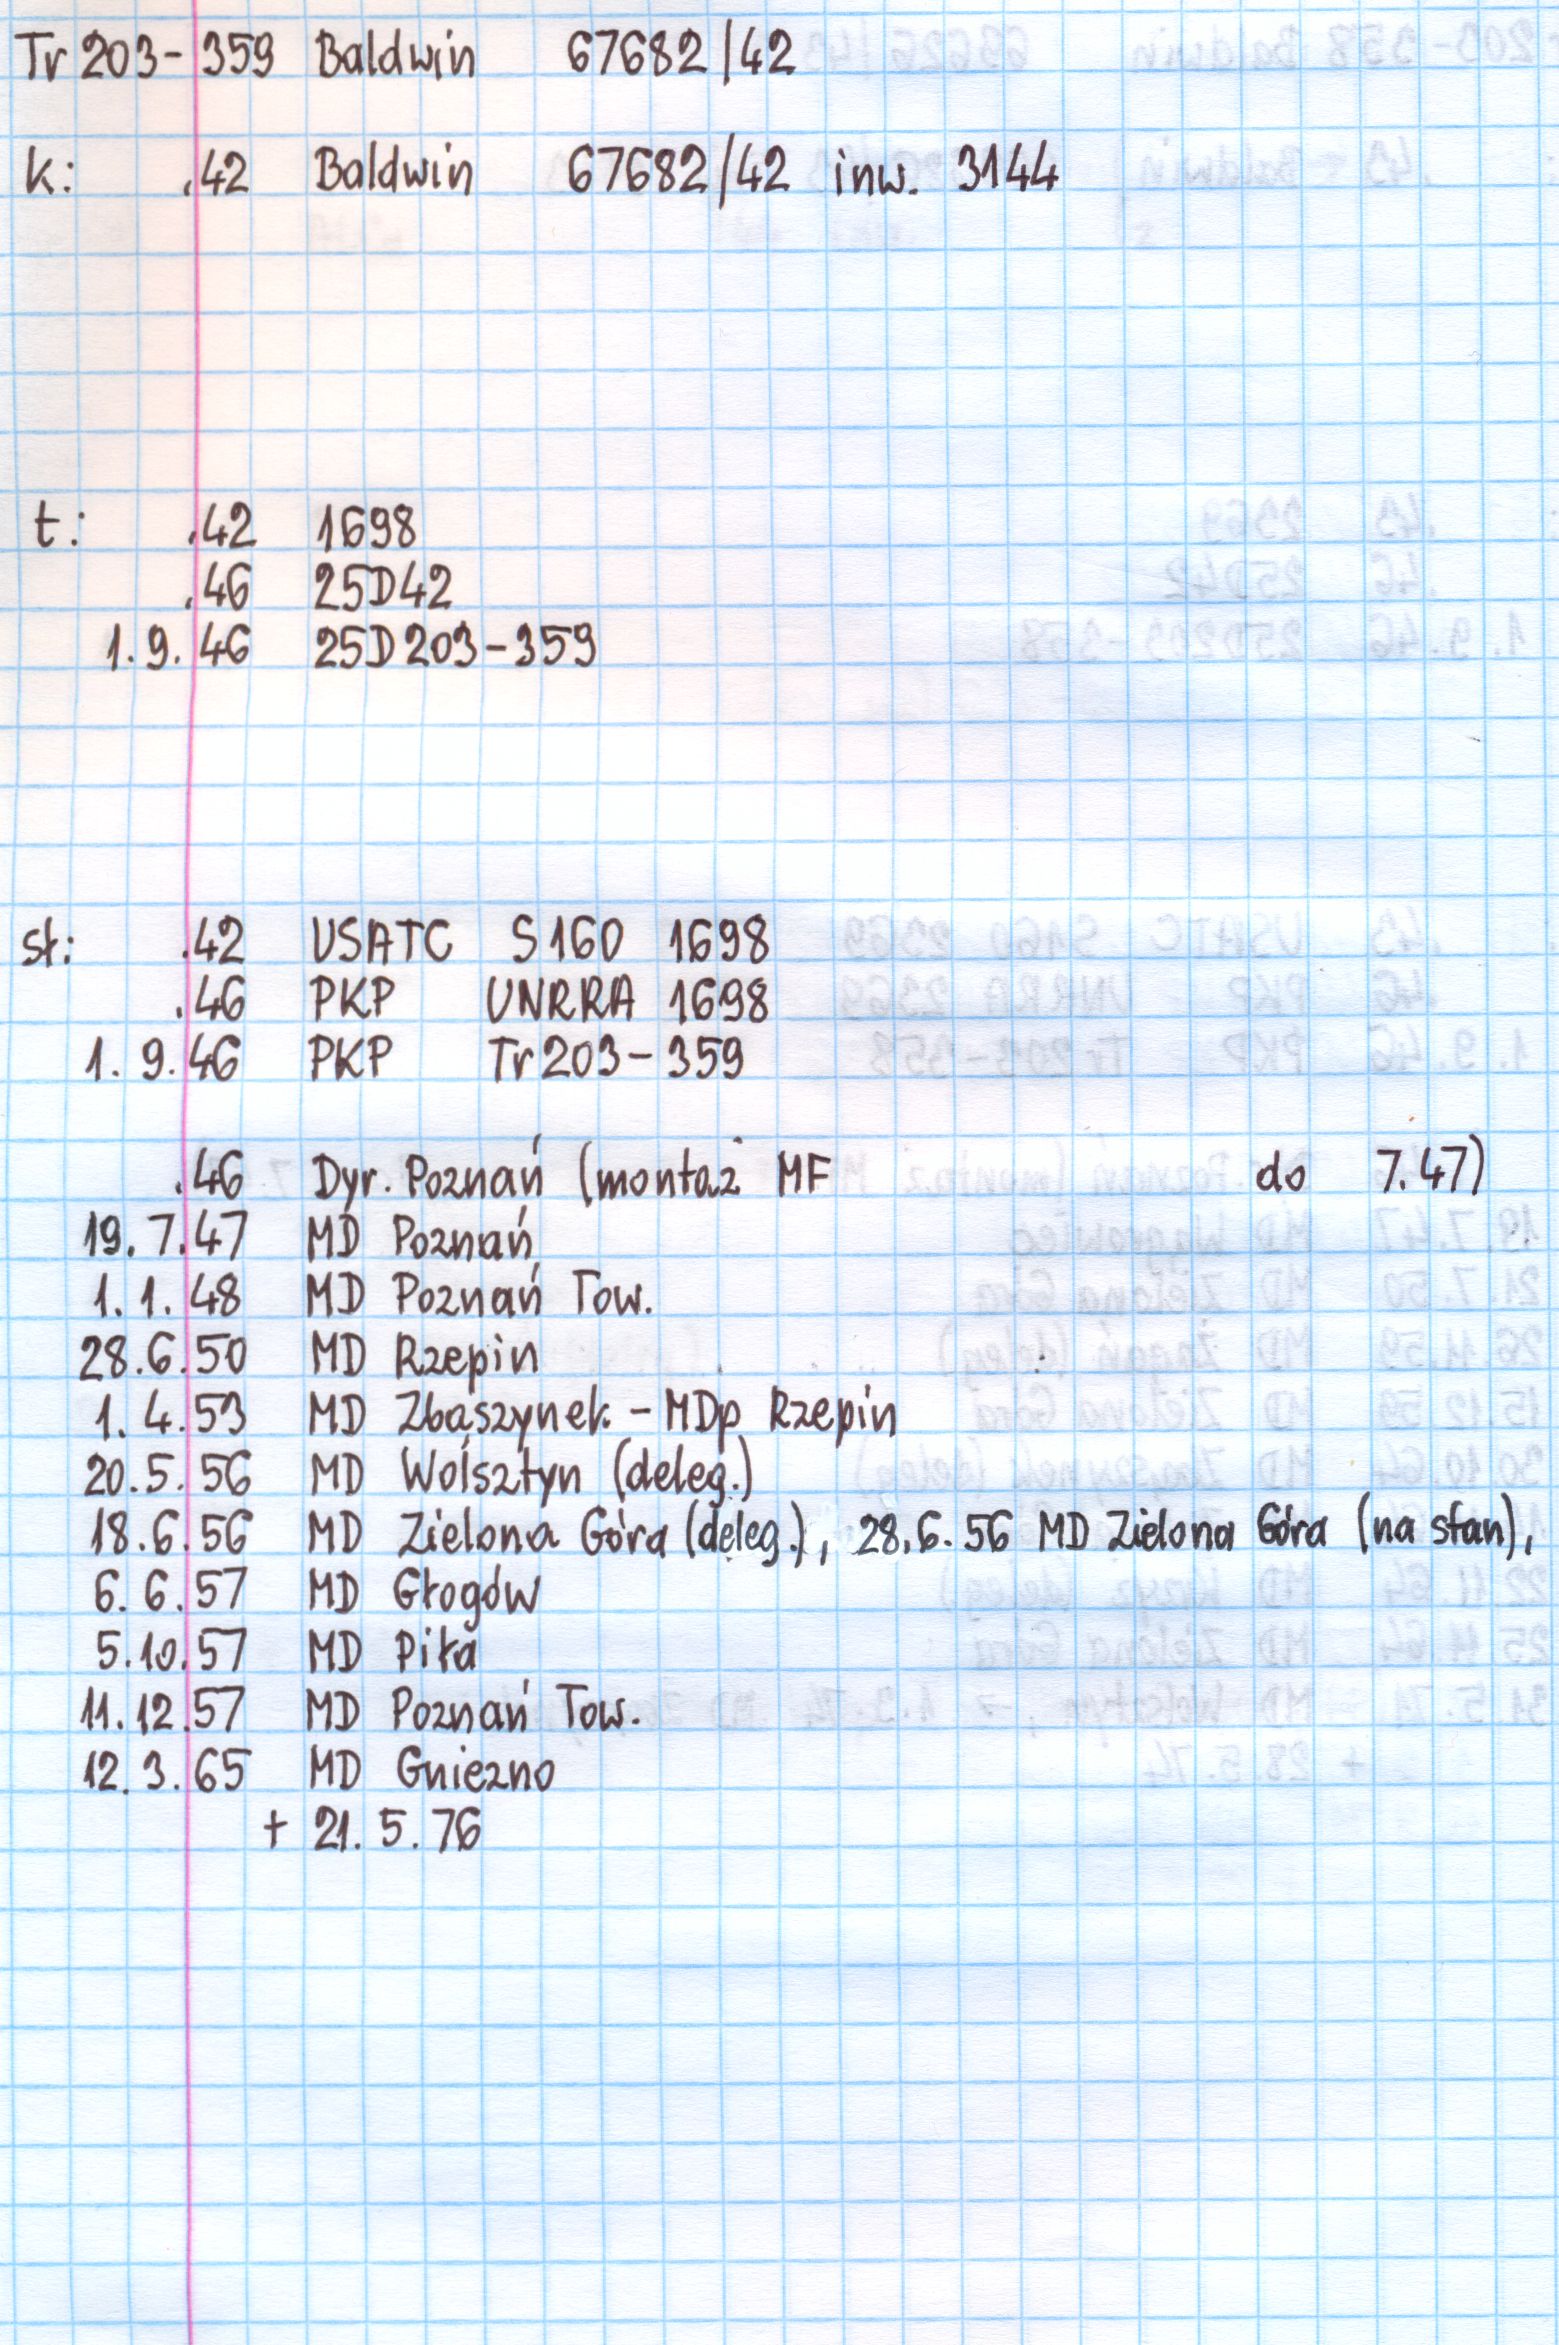 Tr 203-359 Baldwin 67682/42
k: .42 Baldwin 67682/42 inw. 3144
t: .42 1698
.46 25D42
1.9.46 25D203-359
st: .42 USATC S160 1698
.46 PKP UNRRA 1698
1.9.46 PKP Tr203-359
.46 Dyr. Poznań (montaż MF do 7.47)
19.7.47 MD Poznań
1.1.48 MD Poznań Tow.
28.6.50 MD Rzepin
1.4.53 MD Zbąszynek - MDp Rzepin
20.5.56 MD Wolsztyn (deleg.)
18.6.56 MD Zielona Góra (deleg.), 28.6.56 MD Zielona Góra (na stan),
6.6.57 MD Głogów
5.10.57 MD Piła
11.12.57 MD Poznań Tow.
12.3.65 MD Gniezno
+ 21.5.76